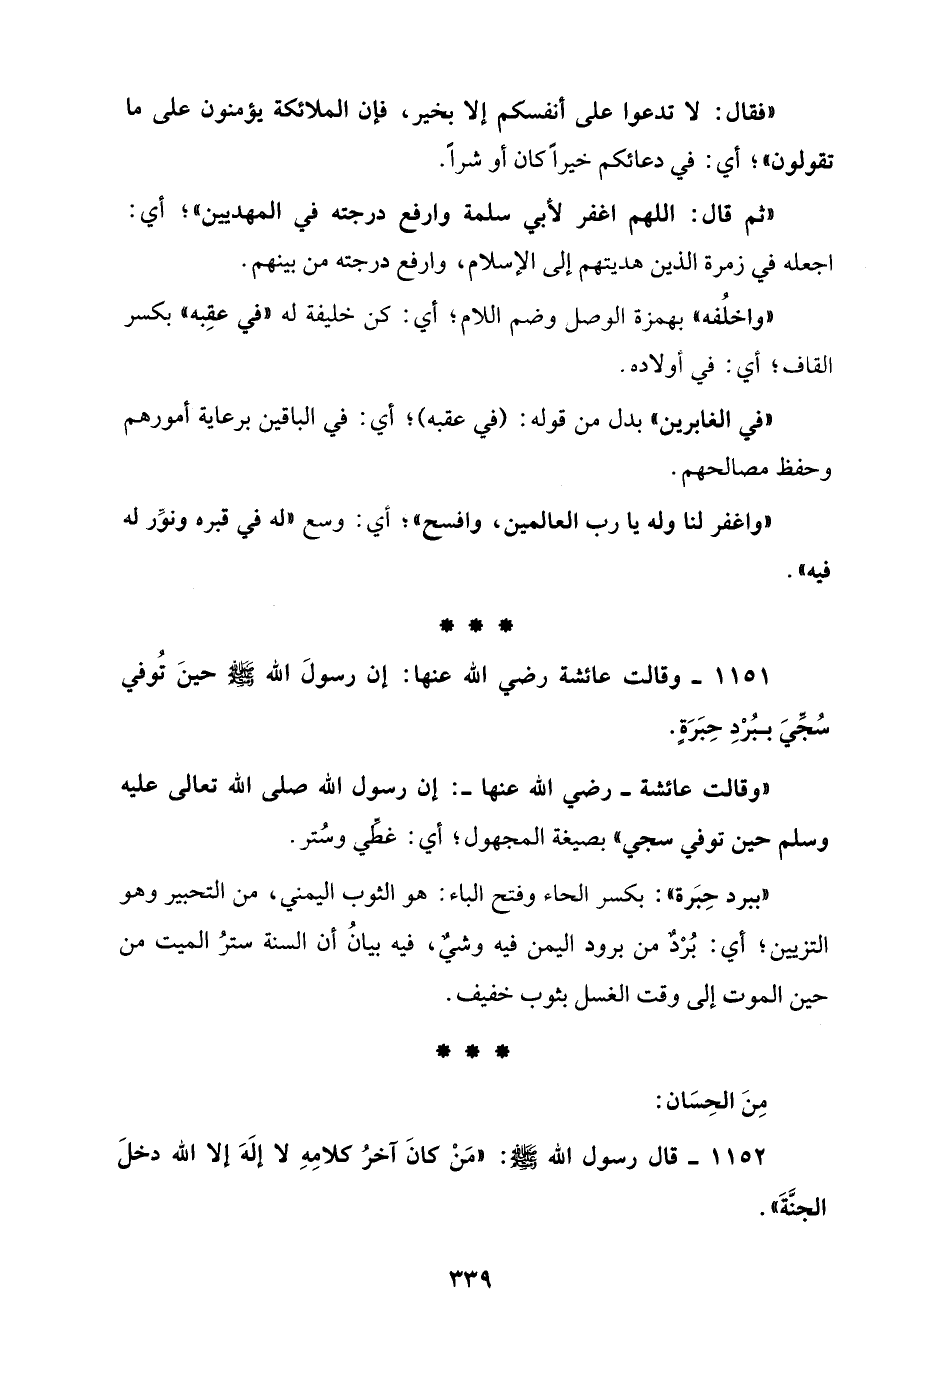 «فقال: لا تدعوا على أنفسكم إلا بخير، فإن الملائكة يؤمنون على ما
تقولون»؛ أي: في دعائكم خيراً كان أو شراً.
«ثم قال: اللهم اغفر لأبي سلمة وارفع درجته في المهديين»؛ أي:
اجعله في زمرة الذين هديتهم إلى الإسلام، وارفع درجته من بينهم.
«واخلُفه» بهمزة الوصل وضم اللام؛ أي: كن خليفة له «في عقِبه» بكسر
القاف؛ أي: في أولاده.
«في الغابرين» بدل من قوله: (في عقبه)؛ أي: في الباقين برعاية أمورهم
وحفظ مصالحهم.
«واغفر لنا وله يا رب العالمين، وافسح»؛ أي: وسع «له في قبره ونوِّر له
فيه».
* * *
١١٥١ ـ وقالت عائشة رضي الله عنها: إن رسولَ الله ﷺ حينَ تُوفي
سُجِّيَ بِبُرْدِ حِبَرَةٍ.
«وقالت عائشة ـ رضي الله عنها ـ: إن رسول الله صلى الله تعالى عليه
وسلم حين توفي سجي» بصيغة المجهول؛ أي: غطِّي وسُتر.
«ببرد حِبَرة»: بكسر الحاء وفتح الباء: هو الثوب اليمني، من التحبير وهو
التزيين؛ أي: بُرْدٌ من برود اليمن فيه وشيٌ، فيه بيانُ أن السنة سترُ الميت من
حين الموت إلى وقت الغسل بثوب خفيف.
* * *
مِنَ الحِسَان:
١١٥٢ ـ قال رسول الله ﷺ: «مَنْ كانَ آخرُ كلامِهِ لا إلَهَ إلا الله دخلَ
الجنَّةَ».
٣٣٩